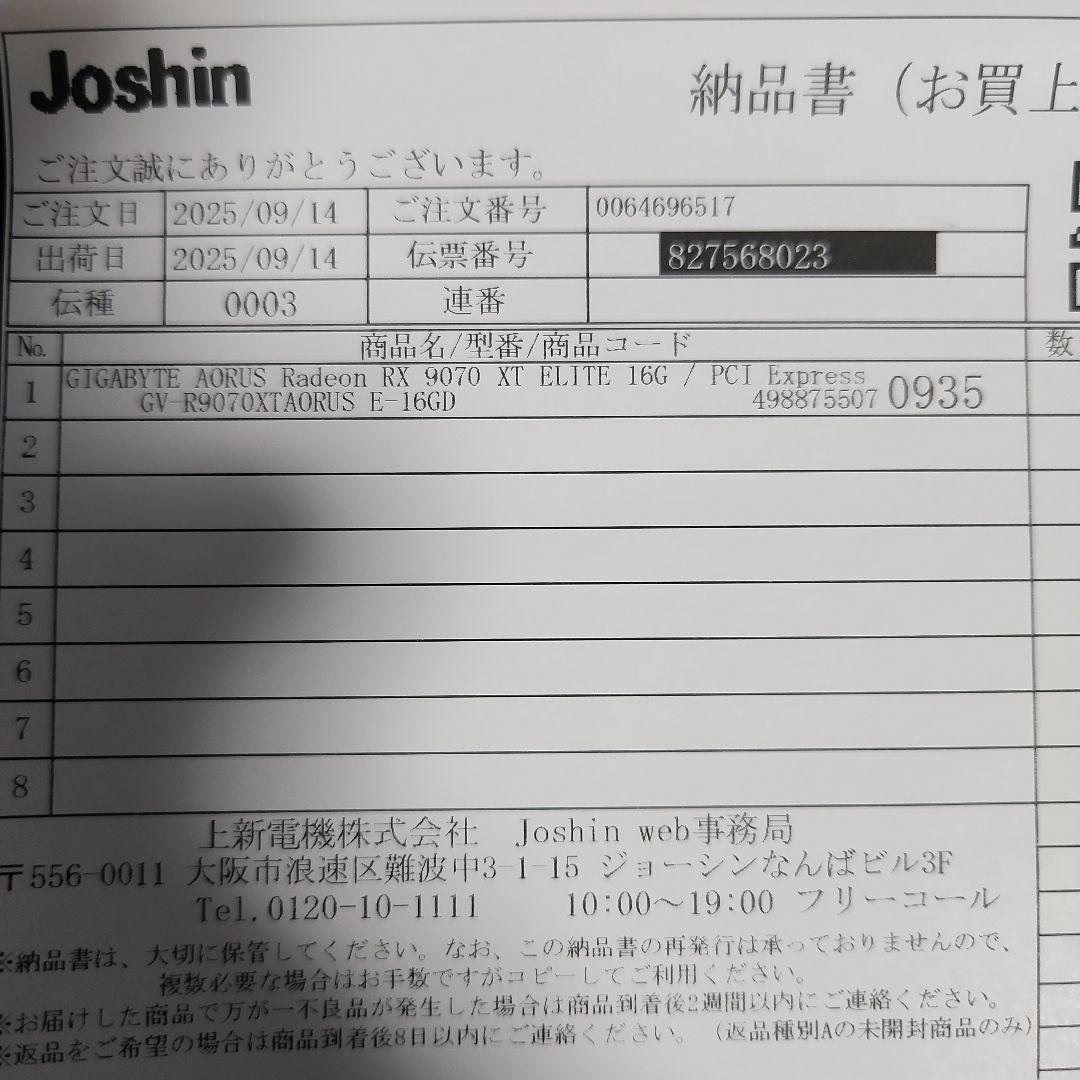 Joshin
納品書（お買上
ご注文誠にありがとうございます。
ご注文日 2025/09/14 ご注文番号 0064696517
出荷日 2025/09/14 伝票番号 827568023
伝種 0003 連番
No. 商品名/型番/商品コード 数
1 GIGABYTE AORUS Radeon RX 9070 XT ELITE 16G / PCI Express
GV-R9070XTAORUS E-16GD 498875507 0935
2
3
4
5
6
7
8
上新電機株式会社 Joshin web事務局
〒556-0011 大阪市浪速区難波中3-1-15 ジョーシンなんばビル3F
Tel.0120-10-1111 10:00～19:00 フリーコール
※納品書は、大切に保管してください。なお、この納品書の再発行は承っておりませんので、
複数必要な場合はお手数ですがコピーしてご利用ください。
※お届けした商品で万が一不良品が発生した場合は商品到着後2週間以内にご連絡ください。
※返品をご希望の場合は商品到着後8日以内にご連絡ください。（返品種別Aの未開封商品のみ）